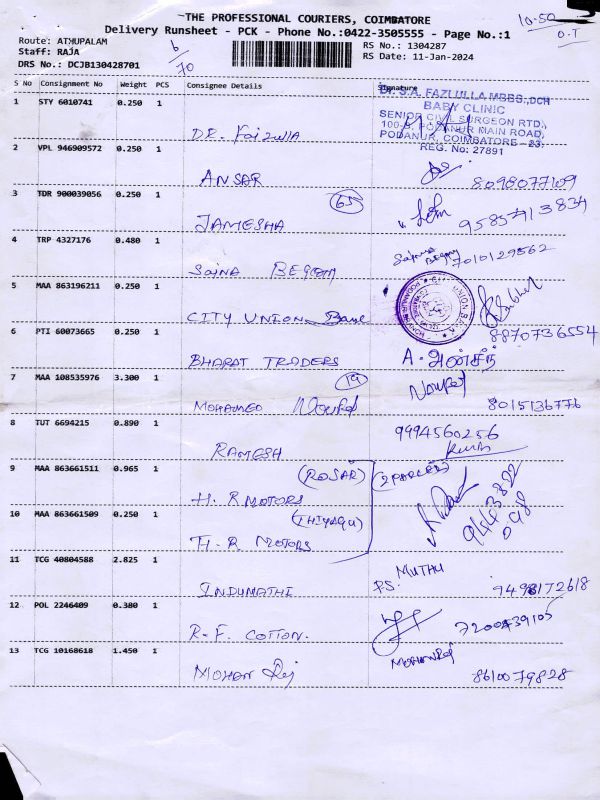 THE PROFESSIONAL COURIERS, COIMBATORE
Delivery Runsheet - PCK - Phone No.:0422-3505555 - Page No.:1
10-50
O.T
Route: ATHUPALAM
Staff: RAJA
DRS No.: DCJB130428701
6/70
RS No.: 1304287
RS Date: 11-Jan-2024
S No Consignment No Weight PCS Consignee Details Signature
1 STY 6010741 0.250 1 DR. Faizulla
Dr. S.A. FAZLULLA MBBS.,DCH
BABY CLINIC
SENIOR CIVIL SURGEON RTD.,
100-B, PODANUR MAIN ROAD,
PODANUR, COIMBATORE - 23.
REG. No: 27891
2 VPL 946909572 0.250 1 ANSAR 8098077109
3 TDR 900039056 0.250 1 JAMESHA 65 9585713834
4 TRP 4327176 0.480 1 Saina BEGOM Sajuna Begam 7010129562
5 MAA 863196211 0.250 1 CITY UNION Bank
6 PTI 60073665 0.250 1 BHARAT TRADERS A. அன்சீர் 8870736554
7 MAA 108535976 3.300 1 MOHAMED Noufel 19 Noufel 8015136776
8 TUT 6694215 0.890 1 RAMESH 9994560256
9 MAA 863661511 0.965 1 H. R MOTORS (ROSAR) (2 PARCEL)
10 MAA 863661509 0.250 1 H. R MOTORS (THIYAGU) 9443822098
11 TCG 40804588 2.825 1 INDUMATHI PS. MUTHU 9498172618
12 POL 2246409 0.380 1 R.F. COTTON. 7200439105
13 TCG 10168618 1.450 1 MOHAN Raj MOHANRAJ 8610079828